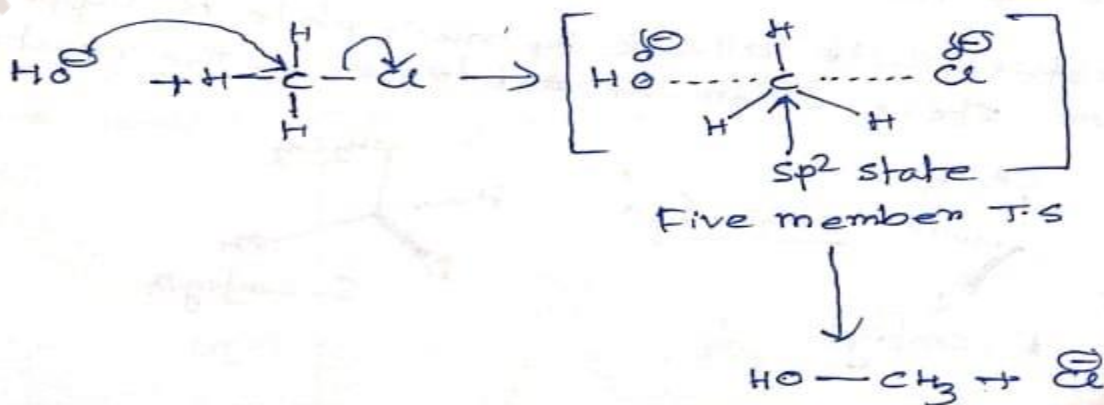 H
HO⊖ + H — C — Cl → [ HO ...... C ...... Cl ]
H
δ⊖ H δ⊖
H H
Sp² state
Five member T.S
HO — CH₃ + Cl⊖